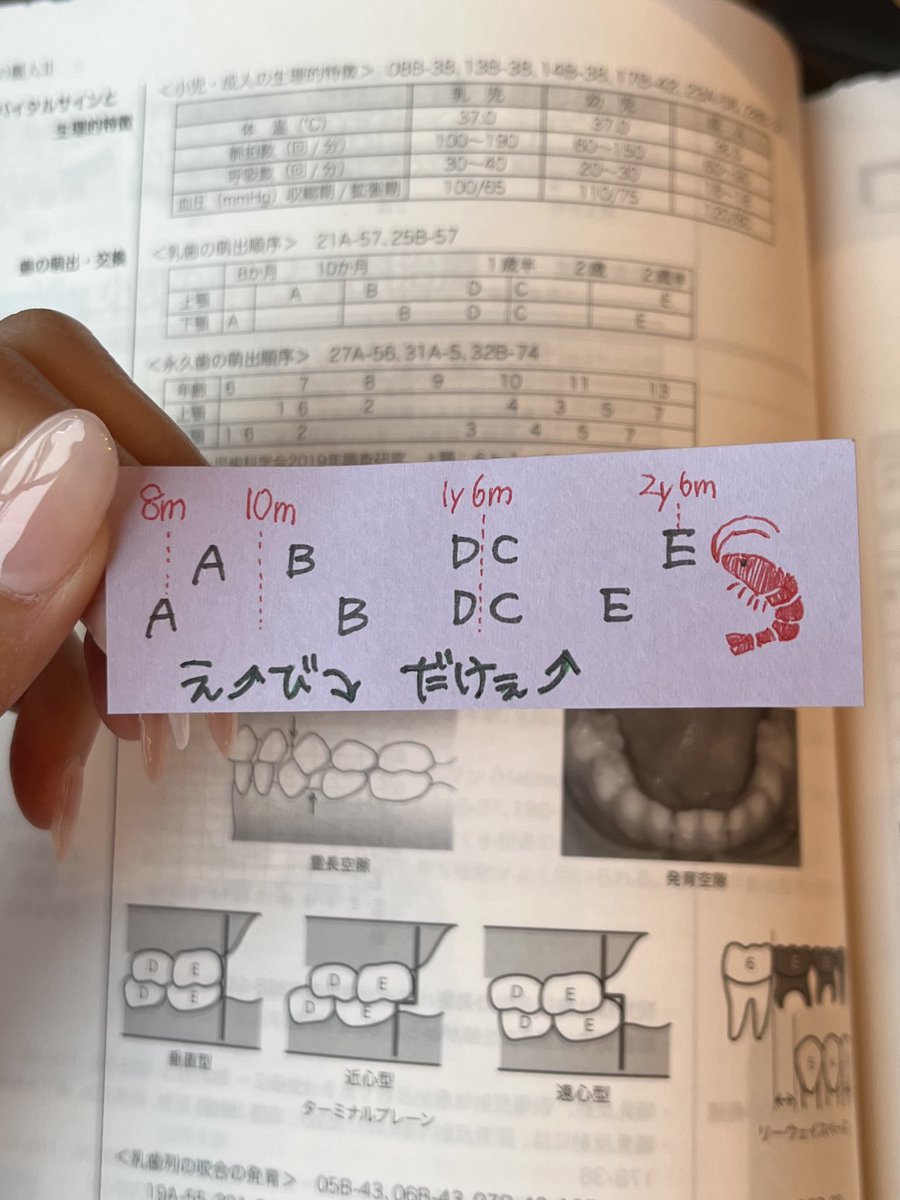 バイタルサインと
生理的特徴
<小児・成人の生理的特徴> 08B-38、13B-38、14B-38、17B-42
乳児 幼児
体温(℃) 37.0 37.0
脈拍数(回/分)
呼吸数(回/分) 30~40 20~30
血圧(mmHg)収縮期/拡張期 100/65 110/75
歯の萌出・交換
<乳歯の萌出順序> 21A-57、25B-57
8か月 10か月 1歳半 2歳 2歳半
上顎 A B D C E
下顎 A B D C E
<永久歯の萌出順序> 27A-56、31A-5、32B-74
年齢 6 7 8 9 10 11 13
上顎 1 6 2 4 3 5 7
1 6 2 3 4 5 7
8m 10m 1y6m 2y6m
A B D C E
A B D C E
え↗び↘ だけぇ↗
霊長空隙
発育空隙
D E
D E
D E
D E
D E
D E
6 E
6
垂直型
近心型
遠心型
ターミナルプレーン
<乳歯列の咬合の発育> 05B-43、06B-43